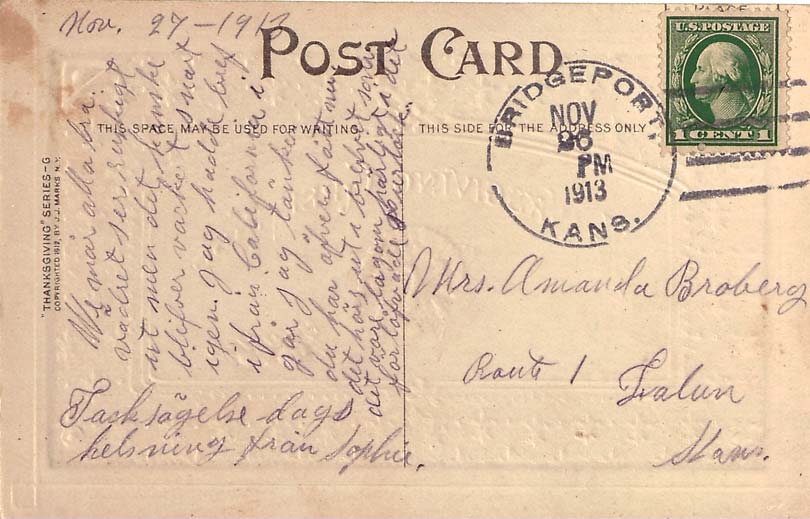 Nov. 27-1913
POST CARD
THIS SPACE MAY BE USED FOR WRITING
THIS SIDE FOR THE ADDRESS ONLY
"THANKSGIVING" SERIES-G
COPYRIGHTED 1912, BY J.J. MARKS N.Y.
U.S. POSTAGE
1 CENT 1
BRIDGEPORT,
NOV
26
PM
1913
KANS.
Wi mår alla bra.
vädret ser ruskigt
ut men det kanske
blifver vackert snart
igen. Jag hadde bref
ifrån California i
går jag tänker
du har äfven fått nu
det hörs ut i brefvet som
det vore lagom härligt i det
för
Tacksägelse dags
helsning från Sophie.
Mrs. Amanda Broberg
Route 1
Falun
Kans.